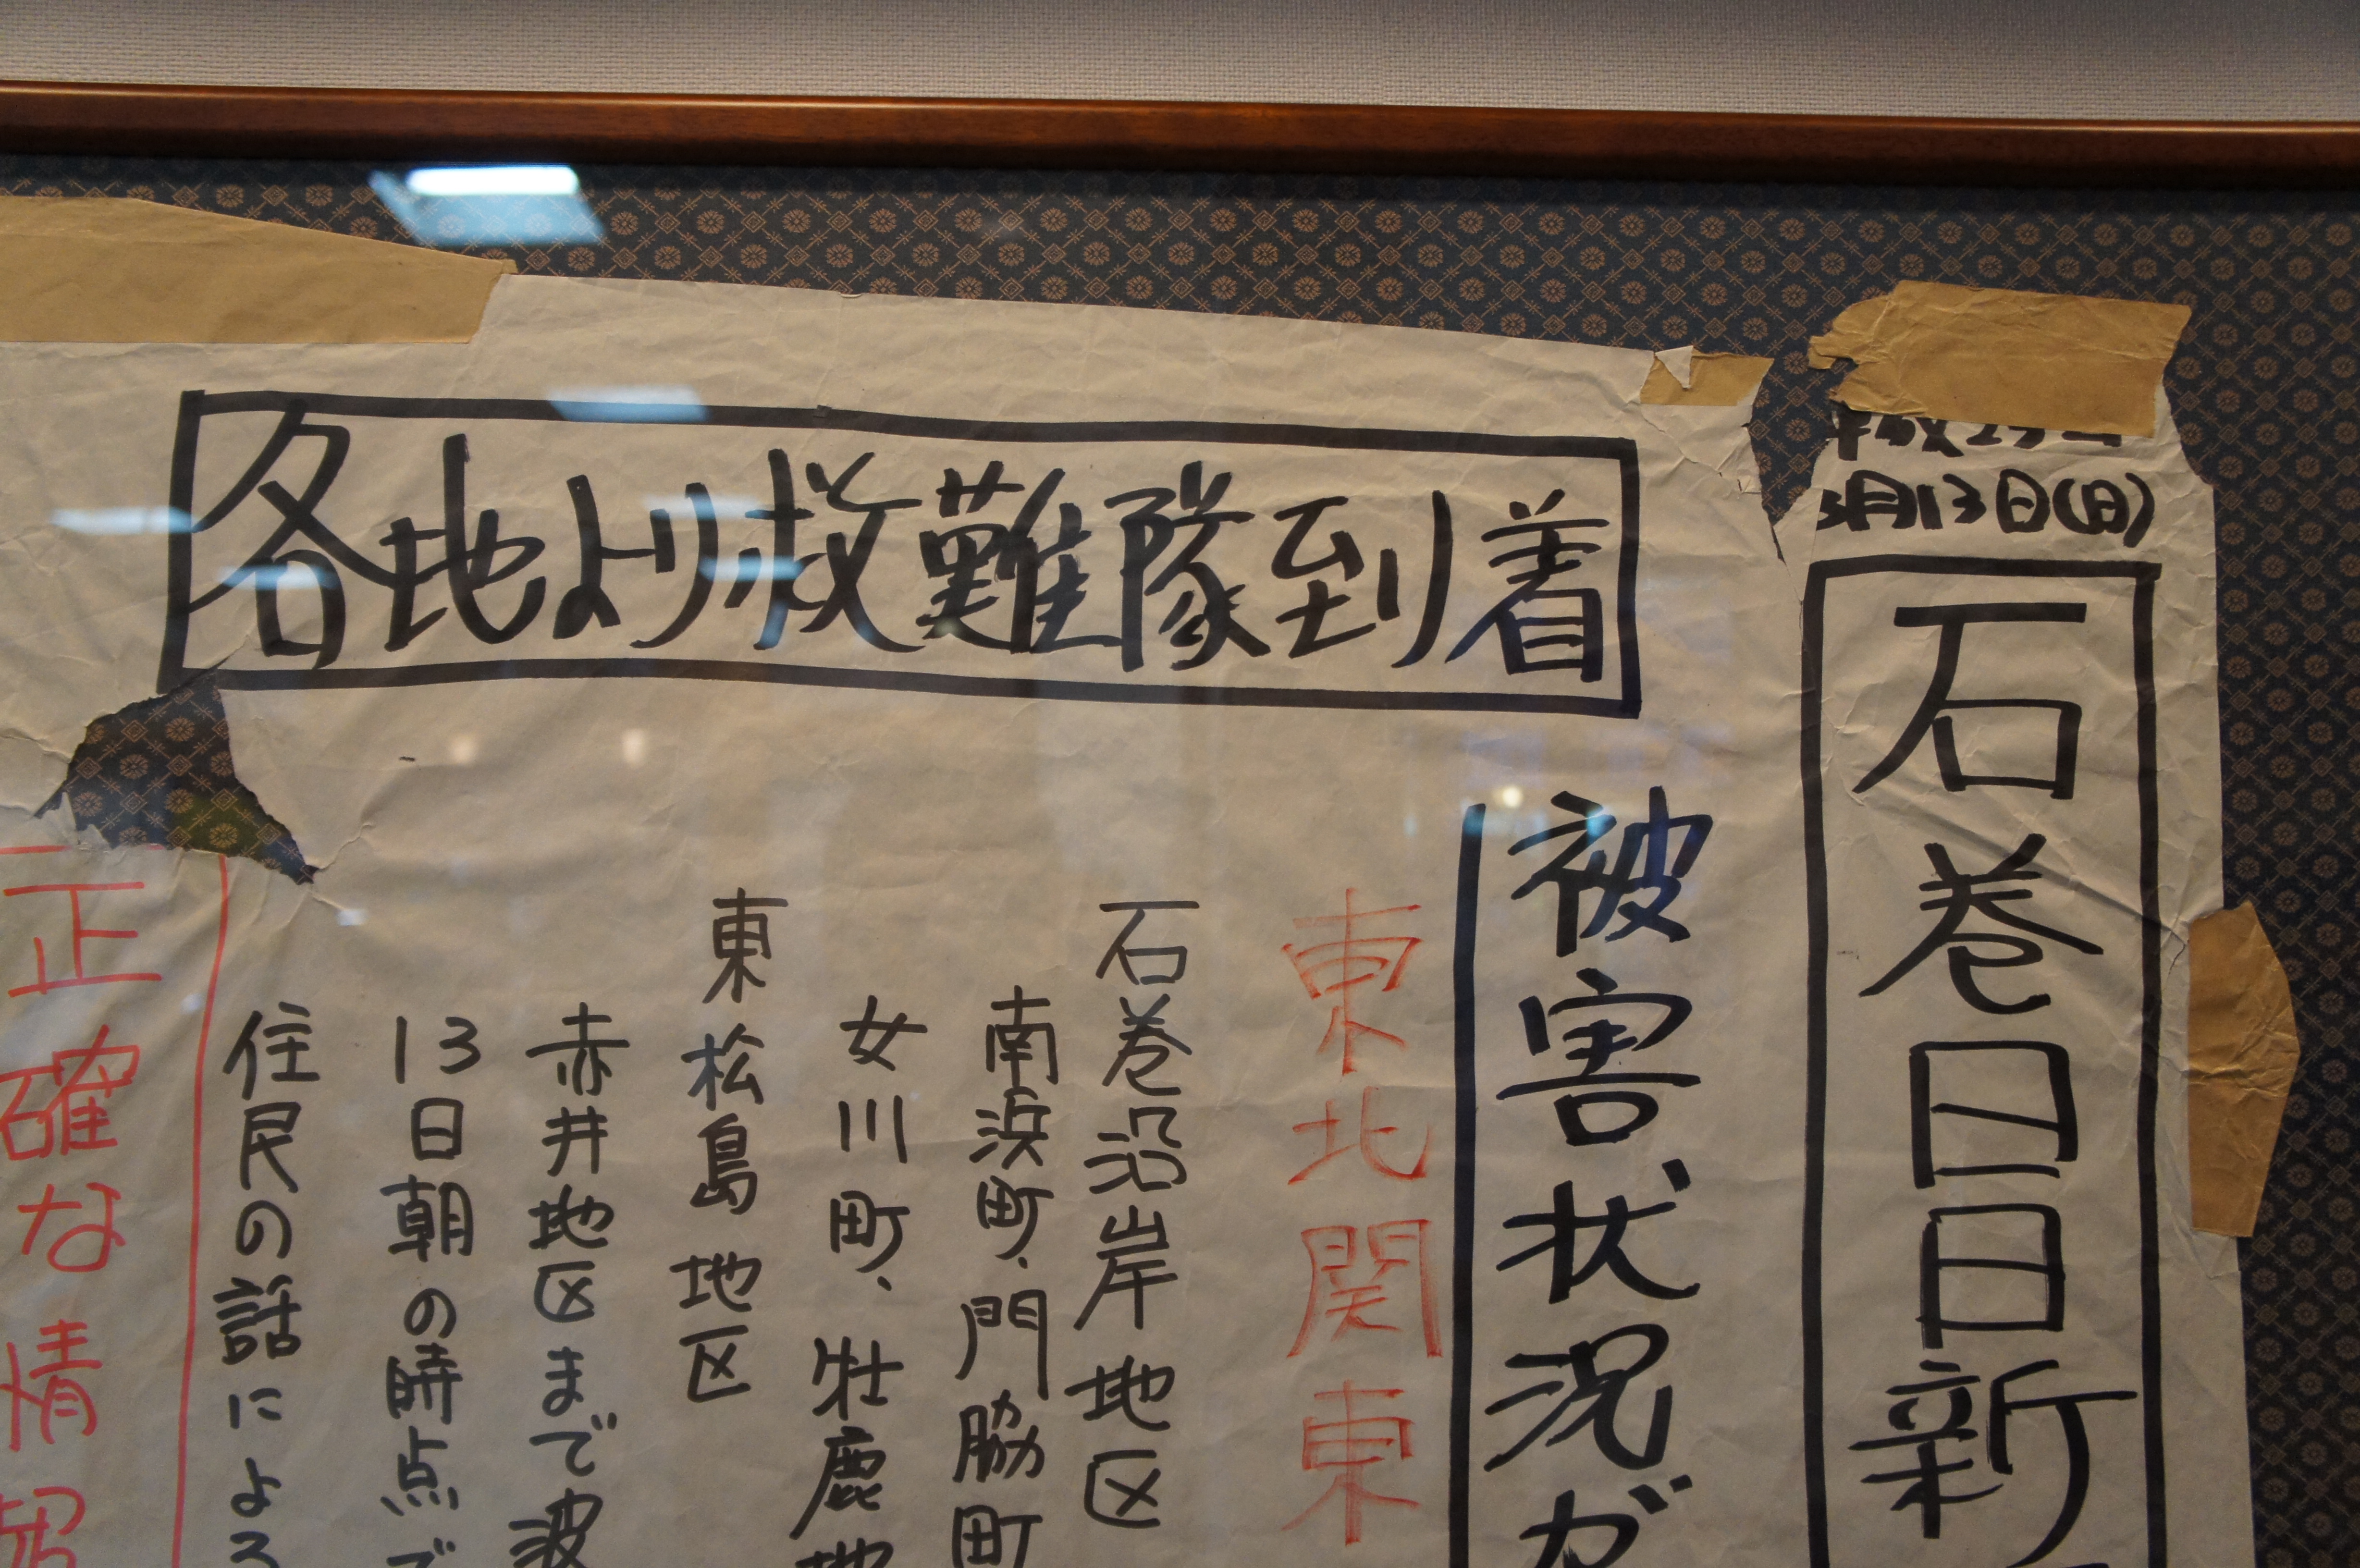 平成23年
3月13日(日)
石巻日日新
各地より救難隊到着
被害状況が
東北関東
石巻沿岸地区
南浜町、門脇町
女川町、牡鹿地
東松島地区
赤井地区まで波
13日朝の時点で
住民の話によ
正確な情報